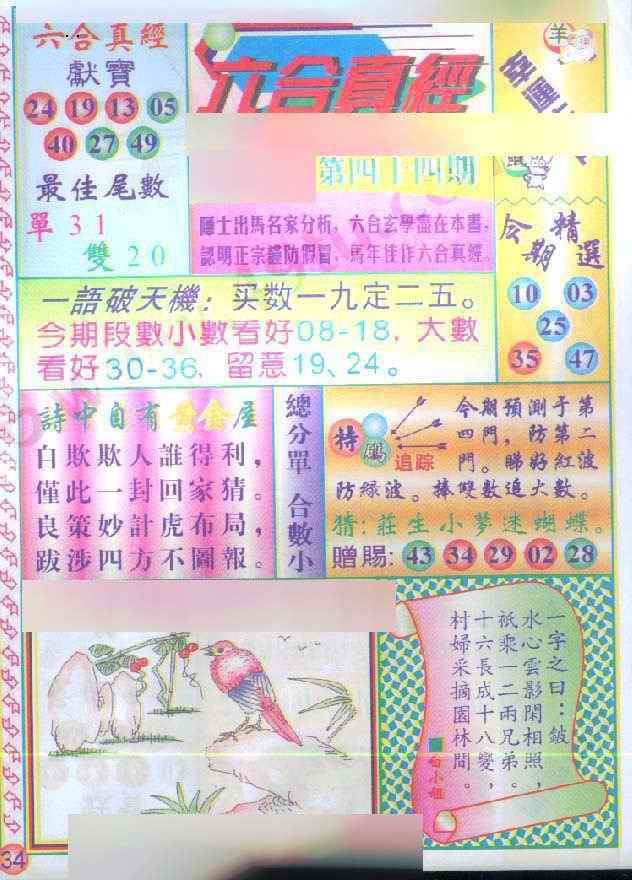 六合真經
獻寶
24 19 13 05
40 27 49
最佳尾數
單31
雙20
六合真經
第四十四期
隱士出馬名家分析，六合玄學盡在本書，
認明正宗謹防假冒，馬年佳作六合真經。
羊
今期精選
10 03
25
35 47
一語破天機：买数一九定二五。
今期段數小數看好08-18，大數
看好30-36，留意19、24。
詩中自有黃金屋
自欺欺人誰得利，
僅此一封回家猜。
良策妙計虎布局，
跋涉四方不圖報。
總分單 合數小
特碼
追踪
今期預測于第
四門，防第二
門。睇好紅波
防綠波。捧雙數追大數。
猜：莊生小夢迷蝴蝶。
贈賜：43 34 29 02 28
一字之曰：皺
水心雲影閑相照，
祇乘一二兩兄弟。
十六長成十八變，
村婦采摘園林間。
白小姐
34